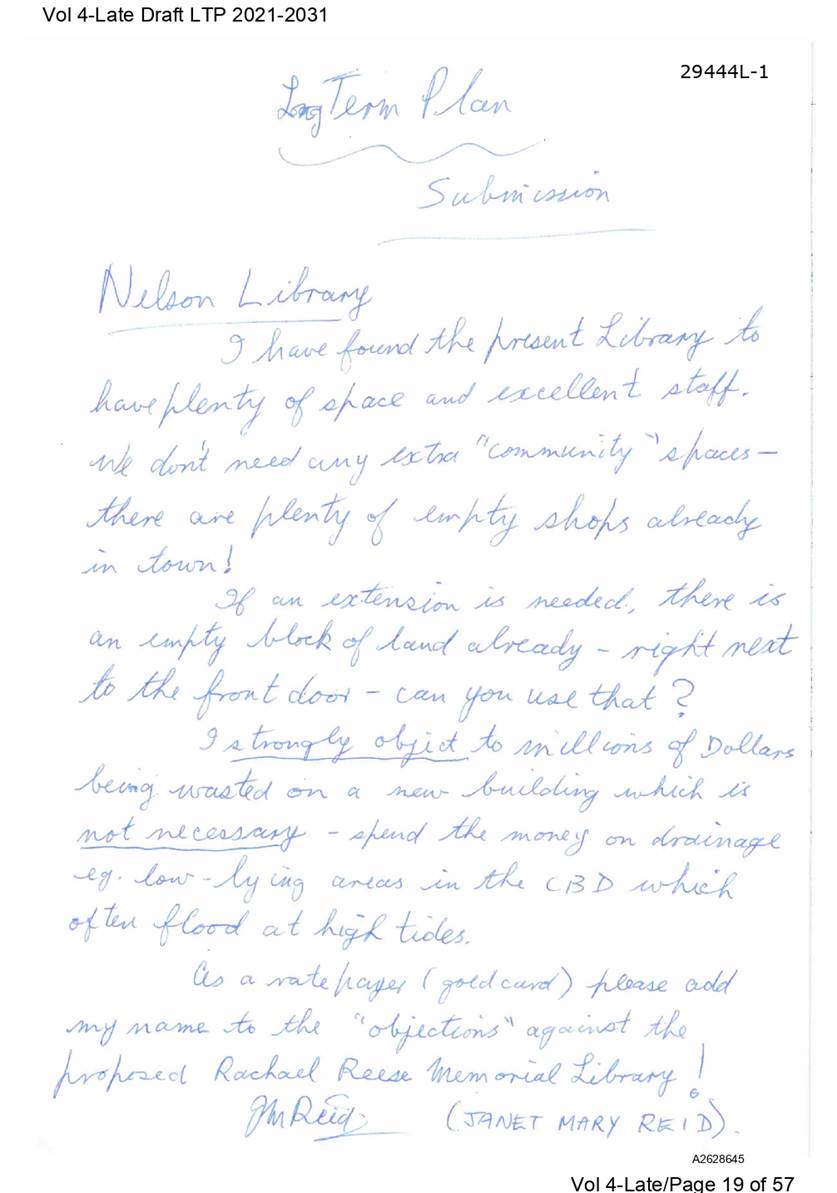 Vol 4-Late Draft LTP 2021-2031
29444L-1
Long Term Plan
Submission
Nelson Library
I have found the present Library to
have plenty of space and excellent staff.
We don't need any extra "community" spaces –
there are plenty of empty shops already
in town!
If an extension is needed, there is
an empty block of land already – right next
to the front door – can you use that?
I strongly object to millions of Dollars
being wasted on a new building which is
not necessary – spend the money on drainage
eg. low-lying areas in the CBD which
often flood at high tides.
As a ratepayer (gold card) please add
my name to the "objections" against the
proposed Rachael Reese Memorial Library!
JM Reid. (JANET MARY REID).
A2628645
Vol 4-Late/Page 19 of 57